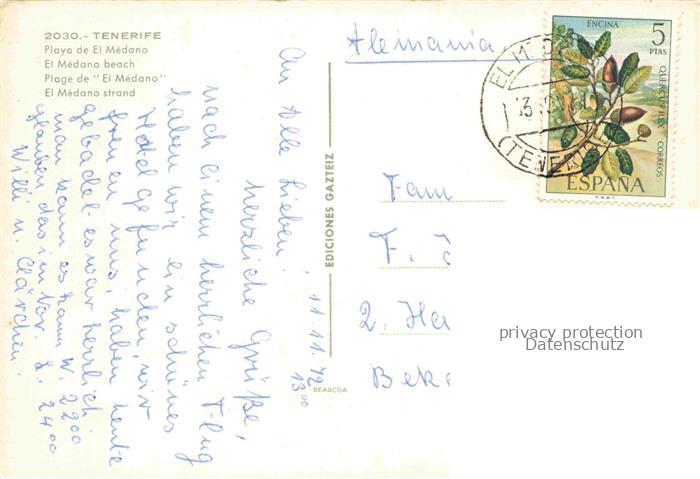 2030.- TENERIFE
Playa de El Médano
El Médano beach
Plage de "El Médano"
El Médano strand
An Alle Lieben!
11.11.72
13 00
Herzliche Grüße,
nach einem herrlichen Flug
haben wir ein schönes
Hotel gefunden, wir
freuen uns, haben heute
gebadet es war herrlich
man kann es kaum W. 22 00
glauben das im Nov. L. 24 00
Willi u. Clärchen.
EDICIONES GAZTEIZ
BEASCOA
Alemania
ENCINA
5
PTAS
QUERCUS ILEX
CORREOS
ESPAÑA
F.N.M.T.
EL
13
(TENERI
Fam
F.
2. Ha
Bek
privacy protection
Datenschutz